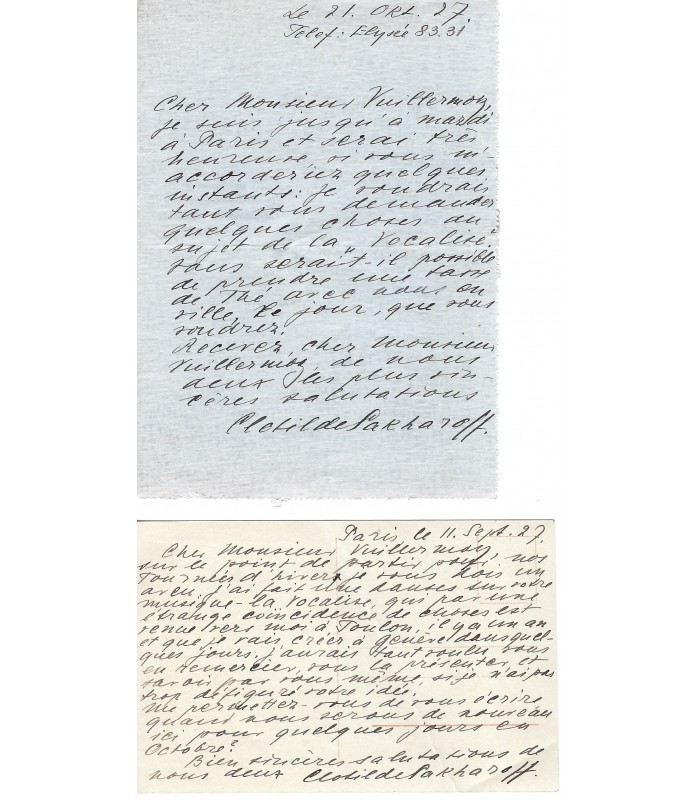 Le 21. Okt. 27.
Telef: Elysée 83.31
Cher Monsieur Vuillermoz,
je suis jusqu'à mardi
à Paris et serai très
heureuse, si vous m'-
accorderiez quelques
instants: je voudrais
tant vous demander
quelques choses au
sujet de la „Vocalise".
vous serait-il possible
de prendre une tasse
de Thé avec nous en
ville, le jour, que vous
voudrez.
Recevez, cher Monsieur
Vuillermoz, de nous
deux les plus sin-
cères salutations
Clotilde Sakharoff.
Paris, le 11. Sept. 27.
Cher Monsieur Vuillermoz,
sur le point de partir pour nos
Tournées d'hiver je vous dois un
aveu, j'ai fait une danse sur votre
musique - la Vocalise, qui par une
étrange coincidence de choses est
venue vers moi à Toulon, il y a un an
et que je vais créer à genève dans quel-
ques jours. j'aurais tant voulu vous
en remercier, vous la présenter, et
savoir par vous même, si je n'ai pas
trop défiguré votre idée.
Me permettez-vous de vous écrire
quand nous serons de nouveau
ici pour quelques jours en
Octobre?
Bien sincères salutations de
nous deux Clotilde Sakharoff.